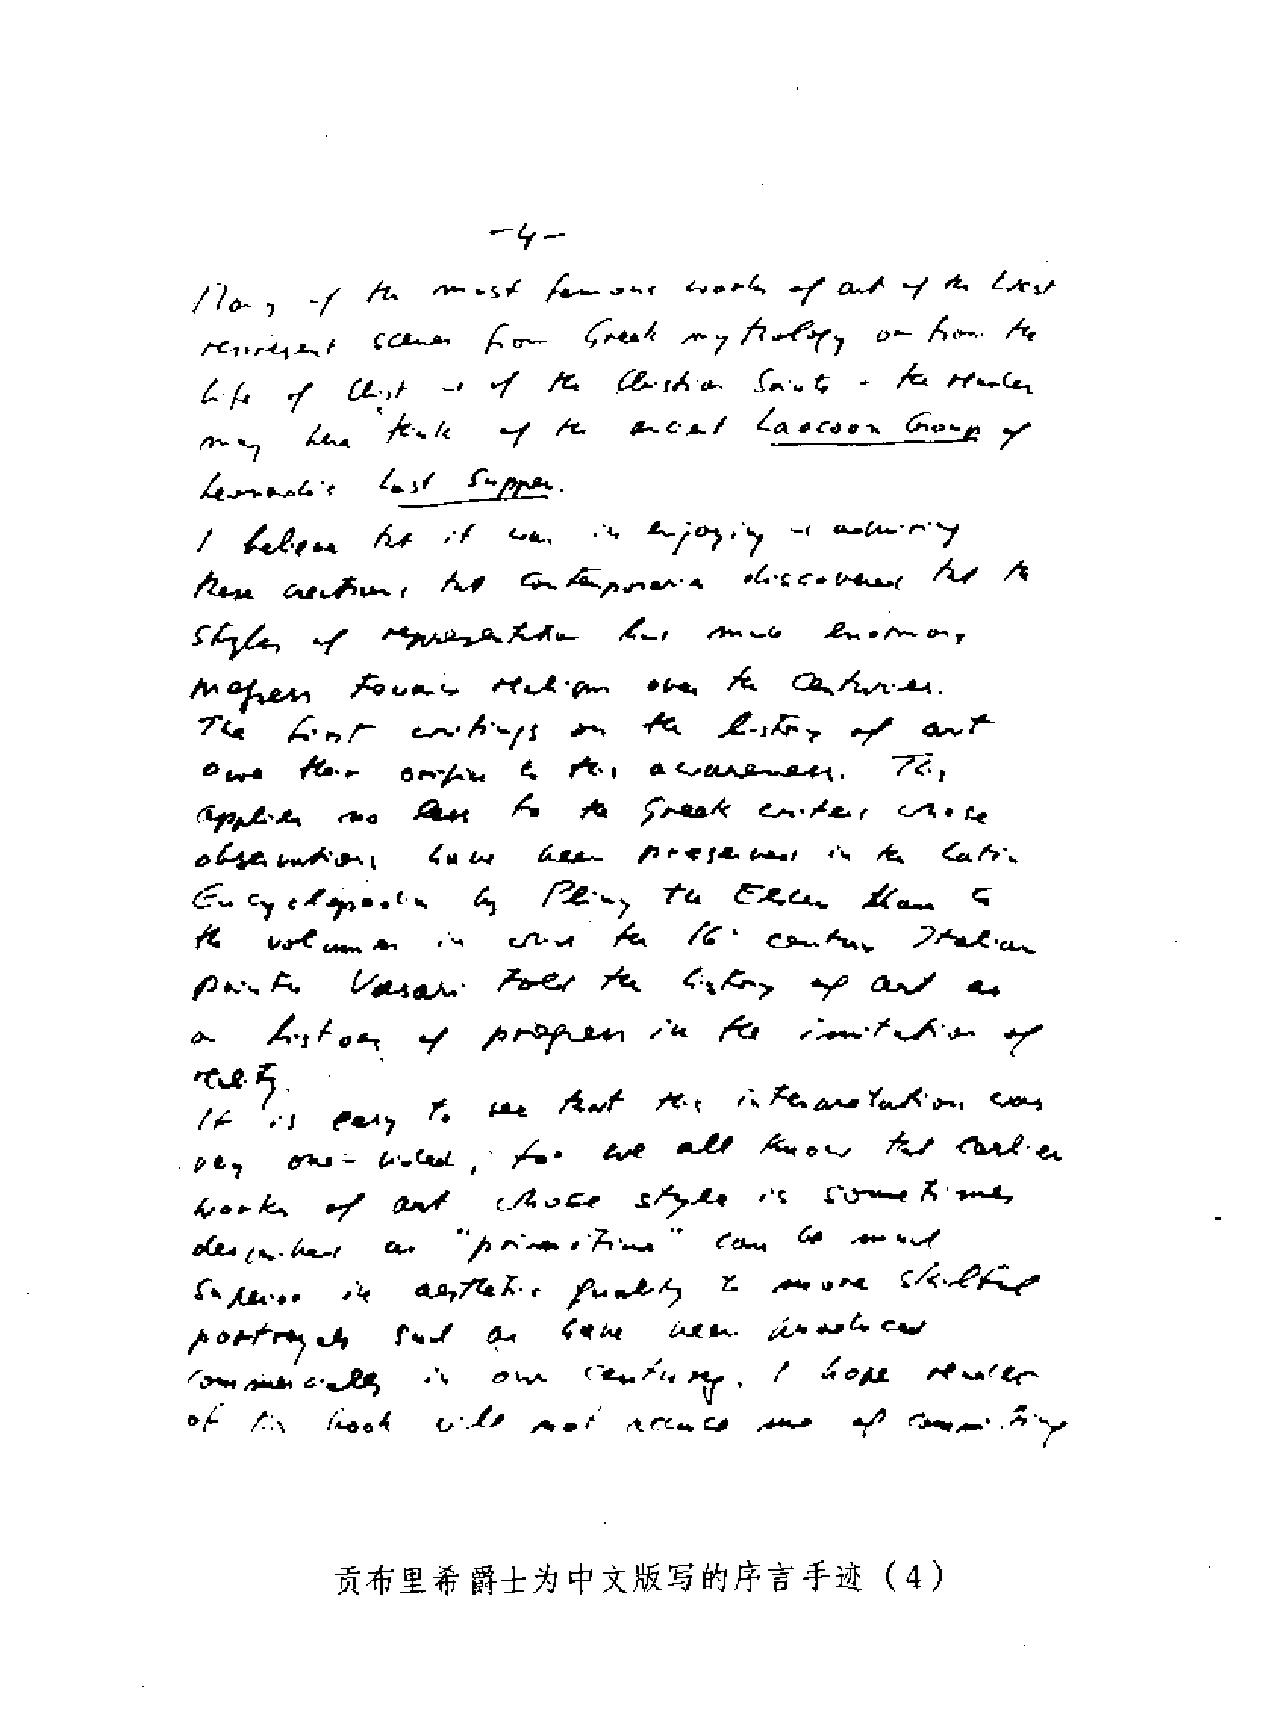 -4-
Many of the most famous works of art of the West
represent scenes from Greek mythology or from the
life of Christ or of the Christian Saints - the reader
may here think of the ancient Laocoon Group of
Leonardo's Last Supper.
I believe that it was in enjoying and admiring
these creations that contemporaries discovered that the
styles of representation had made enormous
progress towards realism over the centuries.
The first writings on the history of art
owe their origin to this awareness. This
applies no less to the Greek writers whose
observations have been preserved in the Latin
Encyclopaedia by Pliny the Elder than to
the volumes in which the 16th century Italian
painter Vasari told the history of art as
a history of progress in the imitation of
reality.
It is easy to see that this interpretation was
very one-sided, for we all know that earlier
works of art whose style is sometimes
described as "primitive" can be much
superior in aesthetic quality to more skilful
portrayals such as have been produced
commercially in our century. I hope readers
of this book will not accuse me of committing
贡布里希爵士为中文版写的序言手迹（4）